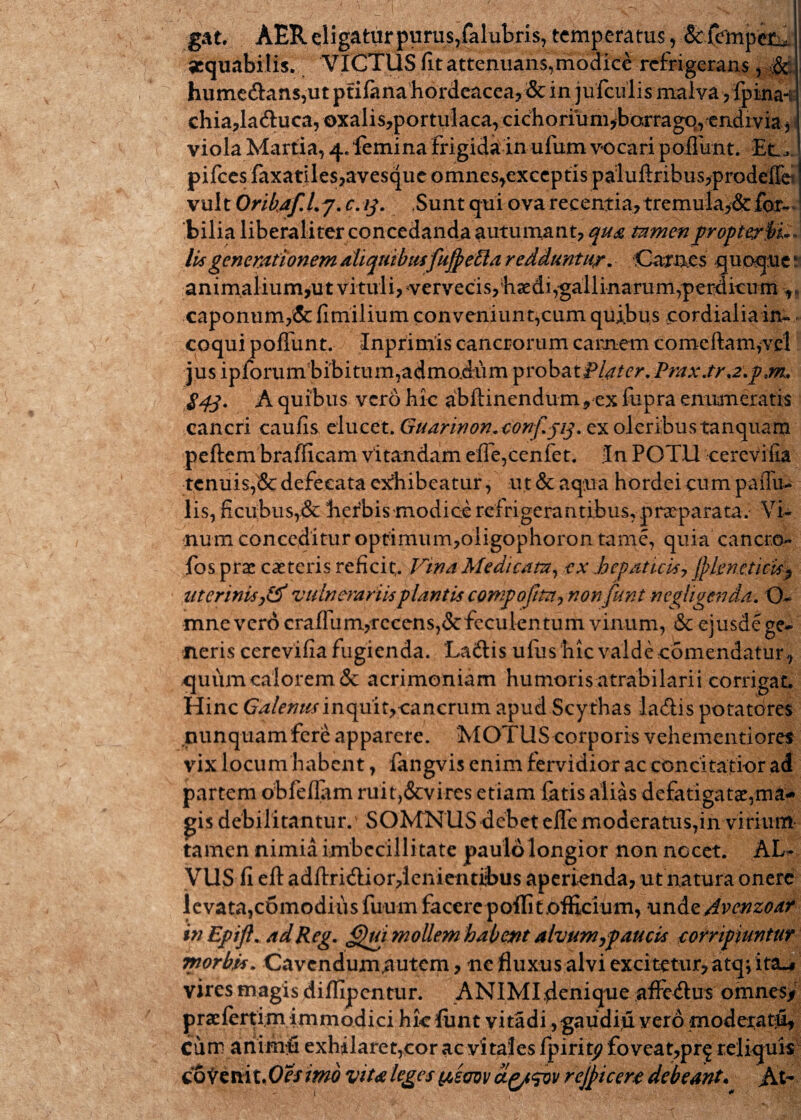 gat. AER eligatur purus,salubris, temperatus, & semper
æquabilis. VICTUS sit attenuans,modicè refrigerans, &
humectans,ut ptisana hordeacea,& in jusculis malva, spina-
chia,lactuca, oxalis,portulaca, cichorium,borrago, endivia,
viola Martia, 4. semina frigida in usum vocari possunt. Et
pisces saxatiles,avesque omnes,exceptis palustribus,prodesse
vult Oribas.l.7.c.13. Sunt qui ova recentia, tremula,& sor-
bilia liberaliter concedanda autumant, quæ tamen propter bi-
lis generationem aliquibus suspecta redduntur. Carnes quoque
animalium,ut vituli, vervecis, hædi,gallinarum,perdicum,
caponum,& similium conveniunt,cum quibus cordialia in-
coqui possunt. Inprimis cancrorum carnem comestam,vel
jus ipsorum bibitum,admodùm probat Plater. Prax.tr.2.p.m.
843. A quibus verò hîc abstinendum, ex supra enumeratis
cancri causis elucet. Guarinon. cons.513. ex oleribus tanquam
pestem brassicam vitandam esse,censet. In POTU cerevisia
tenuis,& defecata exhibeatur, ut & aqua hordei cum passu-
lis, ficubus,& herbis modicè refrigerantibus, præparata. Vi-
num conceditur optimum,oligophoron tamē, quia cancro-
sos præ cæteris reficit. Vina Medicata, ex hepaticis, spleneticis,
uterinis,& vulnerariis plantis composita, non sunt negligenda. O-
mne verò crassum,recens,& feculentum vinum, & ejusdē ge-
neris cerevisia fugienda. Lactis usus hîc valdè cōmendatur,
quùm calorem & acrimoniam humoris atrabilarii corrigat.
Hinc Galenus inquit, cancrum apud Scythas lactis potatores
nunquam ferè apparere. MOTUS corporis vehementiores
vix locum habent, sangvis enim fervidior ac concitatior ad
partem obsessam ruit,& vires etiam satis aliàs defatigatæ,ma-
gis debilitantur. SOMNUS debet esse moderatus,in virium
tamen nimiâ imbecillitate paulò longior non nocet. AL-
VUS si est adstrictior,lenientibus aperienda, ut natura onere
levata,cōmodiùs suum facere possit officium, unde Avenzoar
in Epist. ad Reg. Qui mollem habent alvum, paucis corripiuntur
morbis. Cavendum autem, ne fluxus alvi excitetur, atq; ita
vires magis dissipentur. ANIMI denique affectus omnes,
præsertim immodici hîc sunt vitādi, gaudiū verò moderatū,
cùm animū exhilaret,cor ac vitales spiritꝰ foveat,prę reliquis
cōvenit. Oēs imò vitæ leges μέσον ἄριστον respicere debeant. At-